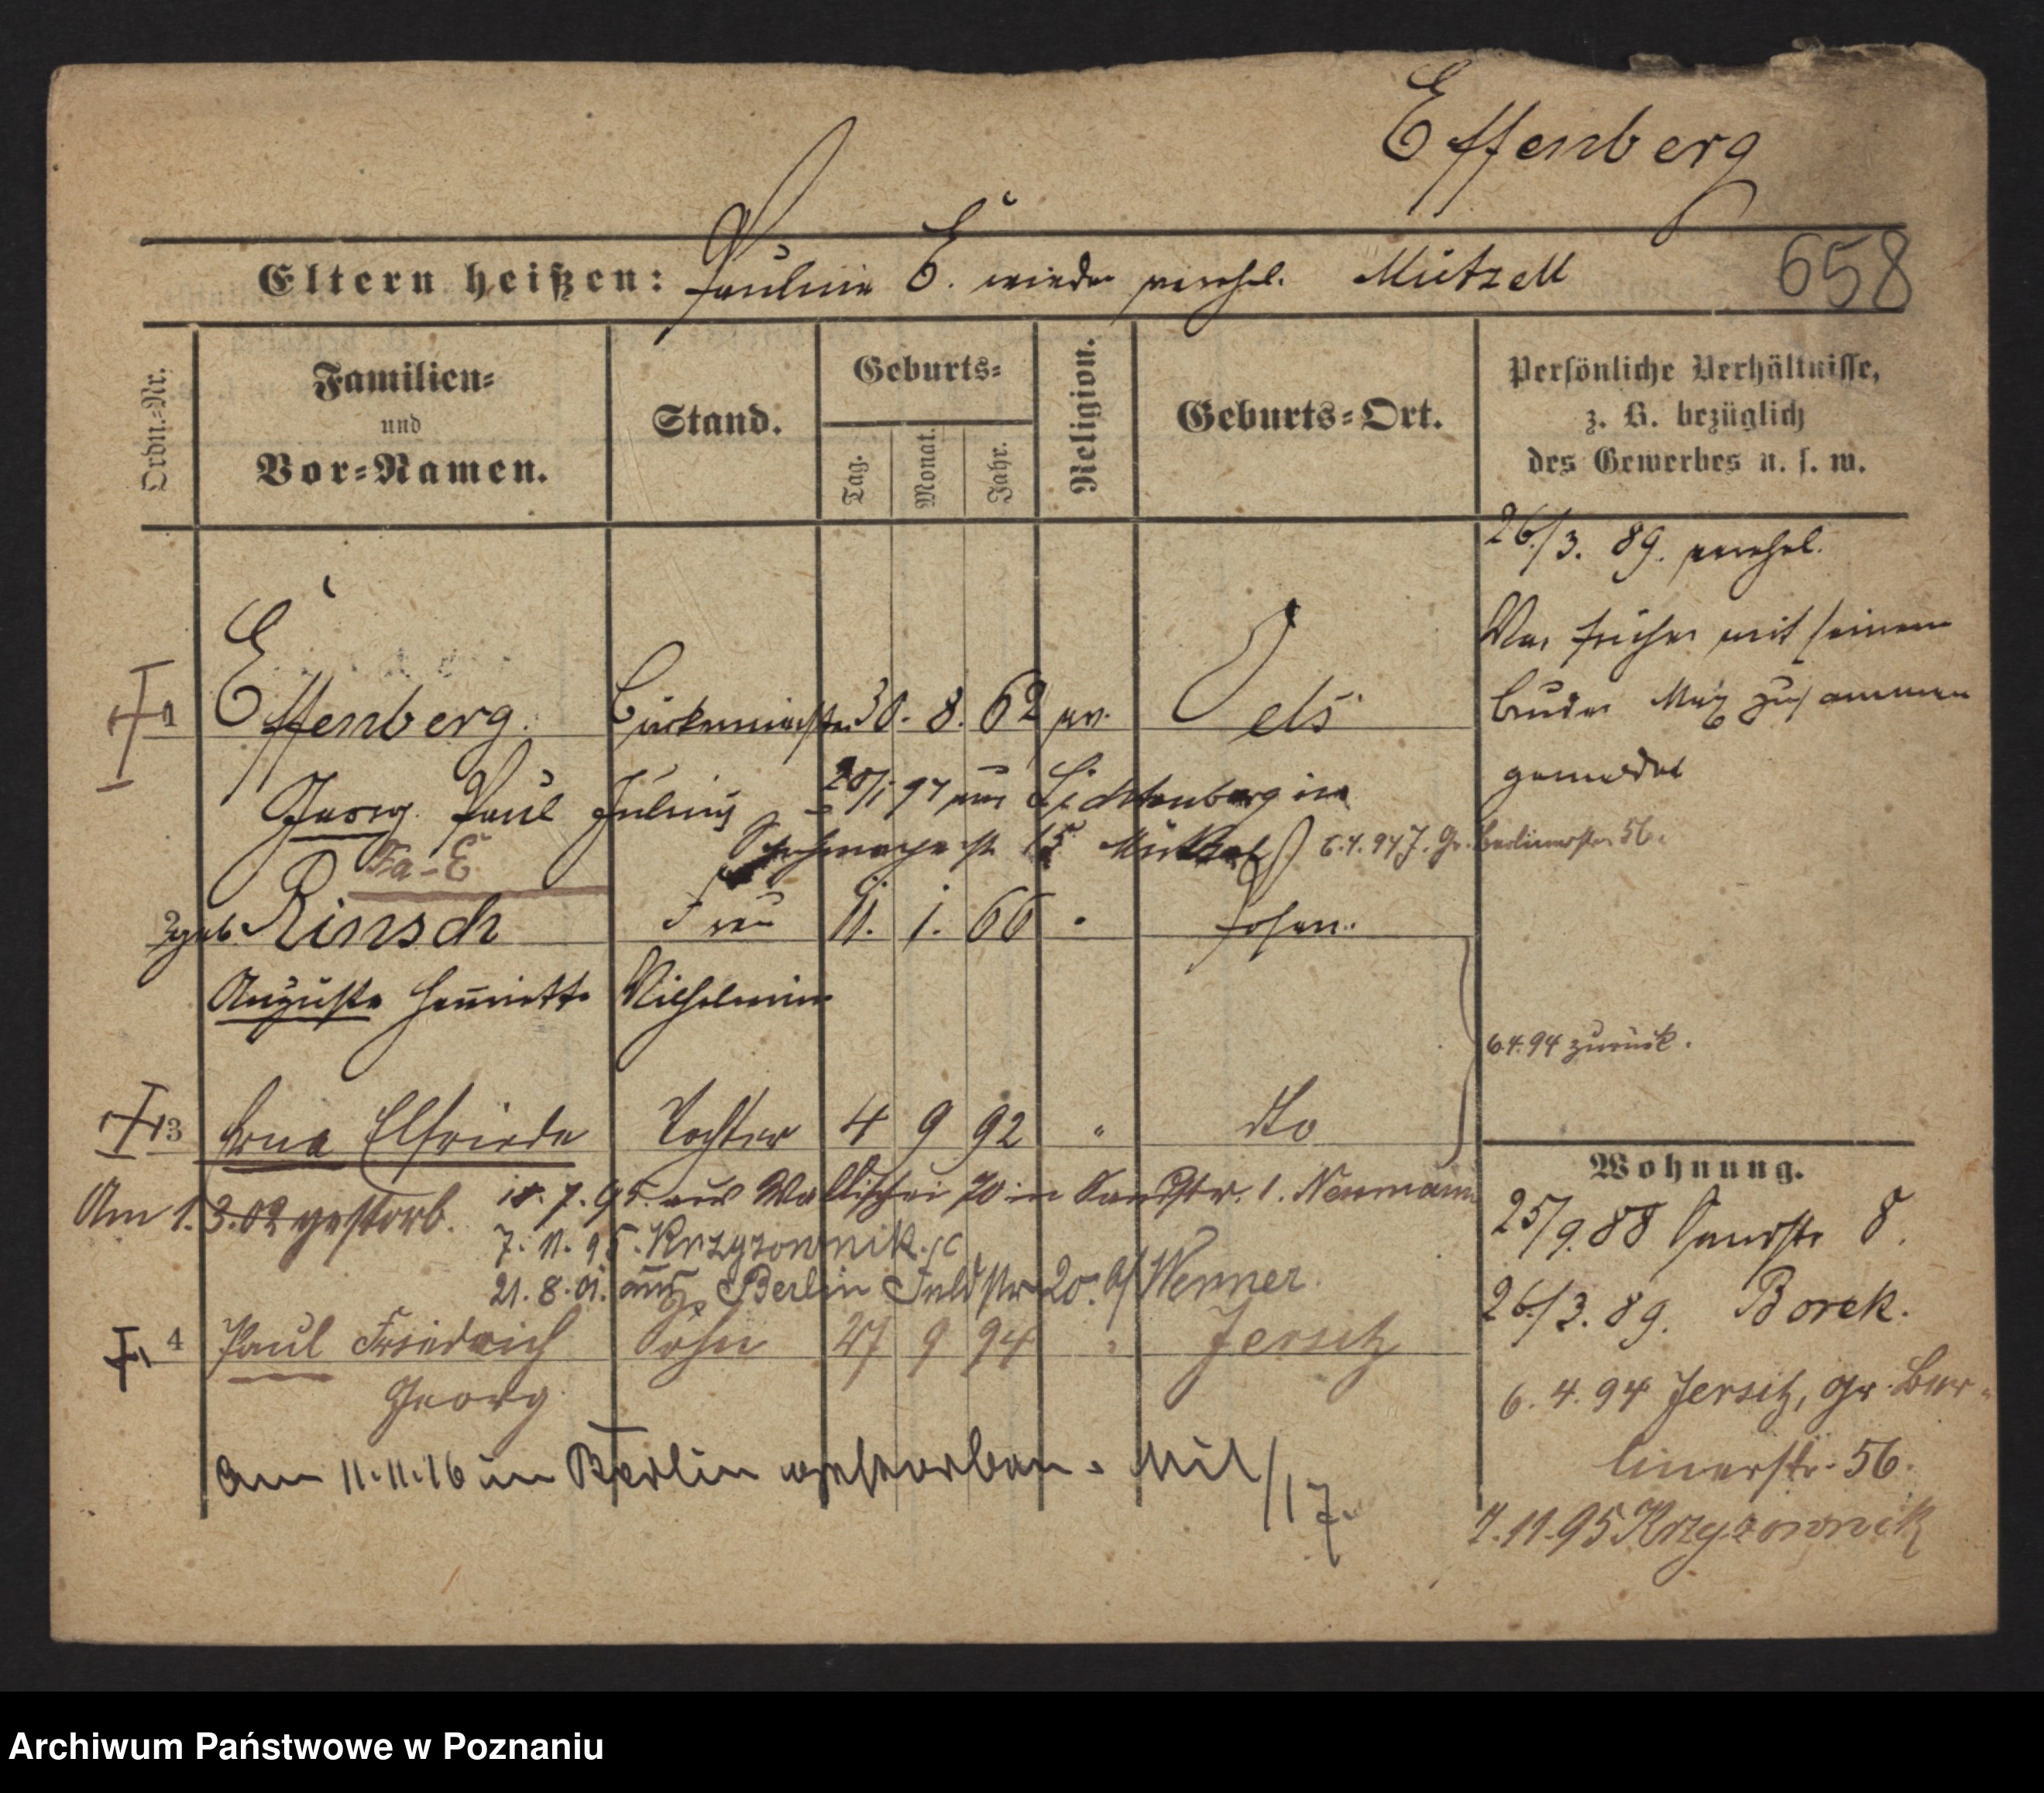 Effenberg
658
Eltern heißen: Pauline E. wieder verehel. Mützell
Ordn.-Nr.
Familien-
und
Vor-Namen.
Stand.
Geburts-
Tag.
Monat.
Jahr.
Religion.
Geburts-Ort.
Persönliche Verhältnisse,
z. B. bezüglich
des Gewerbes u. s. w.
26./3. 89. verehel.
War früher mit seinem
Bruder Max zusammen
gemeldet
1 Effenberg. 30. 8. 62 ev. Oels
Georg Paul Julius
20/1 94 aus Lichtenberg in
15 6.4.94 J. Gr. Berlinerstr. 56.
Fa-E
2 geb. Rinsch Frau 11. 1. 66 " Posen.
Auguste Henriette Wilhelmine
6.4.94 zurück.
3 Erna Elfriede Tochter 4 9 92 " dto
Am 1.3.02 gestorb.
10.7.95. aus Wallischei 70 in Sandstr. 1. Neumann
7. 11. 95. Krzyzownik
21.8.01. aus Berlin Feldstr 20. b/ Wenner.
4 Paul Friedrich Sohn 27 9 94 " Jersitz
Georg
am 11.11.16 in Berlin gestorben. Mil/17.
Wohnung.
25/9.88 Sandstr 8.
26./3. 89. Borek.
6. 4. 94 Jersitz, Gr. Ber-
linerstr. 56.
7.11.95 Krzyzownik
Archiwum Państwowe w Poznaniu